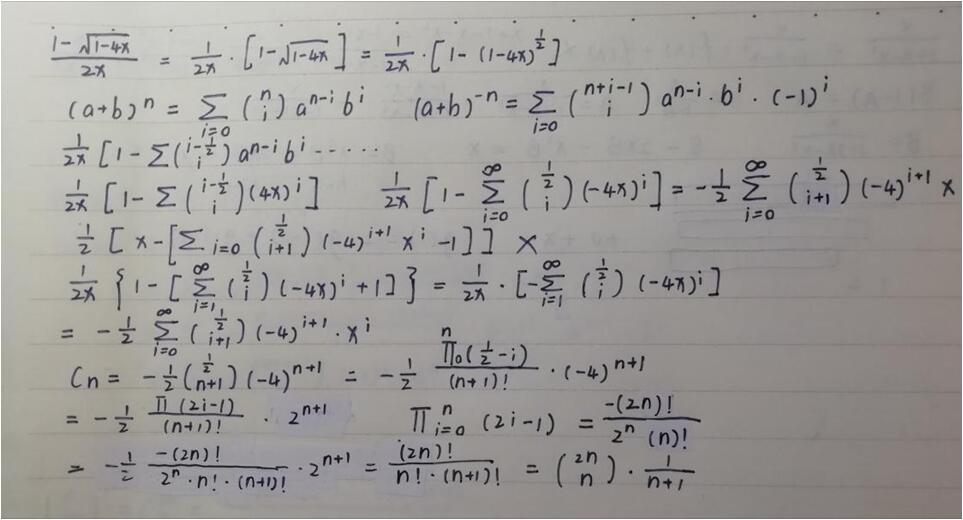 \frac{1-\sqrt{1-4x}}{2x} = \frac{1}{2x} \cdot [1-\sqrt{1-4x}] = \frac{1}{2x} \cdot [1-(1-4x)^{\frac{1}{2}}]
(a+b)^n = \sum_{i=0} \binom{n}{i} a^{n-i} b^i  (a+b)^{-n} = \sum_{i=0} \binom{n+i-1}{i} a^{n-i} \cdot b^i \cdot (-1)^i
\frac{1}{2x} [1-\sum \binom{i-\frac{1}{2}}{i} a^{n-i} b^i ......
\frac{1}{2x} [1-\sum \binom{i-\frac{1}{2}}{i} (4x)^i]  \frac{1}{2x} [1-\sum_{i=0}^{\infty} \binom{\frac{1}{2}}{i} (-4x)^i] = -\frac{1}{2} \sum_{i=0}^{\infty} \binom{\frac{1}{2}}{i+1} (-4)^{i+1} x
\frac{1}{2} [x-[\sum_{i=0} \binom{\frac{1}{2}}{i+1} (-4)^{i+1} x^i -1]] ×
\frac{1}{2x} \{1-[\sum_{i=1}^{\infty} \binom{\frac{1}{2}}{i} (-4x)^i +1]\} = \frac{1}{2x} \cdot [-\sum_{i=1}^{\infty} \binom{\frac{1}{2}}{i} (-4x)^i]
= -\frac{1}{2} \sum_{i=0}^{\infty} \binom{\frac{1}{2}}{i+1} (-4)^{i+1} \cdot x^i
C_n = -\frac{1}{2} \binom{\frac{1}{2}}{n+1} (-4)^{n+1} = -\frac{1}{2} \frac{\prod_0^n (\frac{1}{2}-i)}{(n+1)!} \cdot (-4)^{n+1}
= -\frac{1}{2} \frac{\prod (2i-1)}{(n+1)!} \cdot 2^{n+1}  \prod_{i=0}^{n} (2i-1) = \frac{-(2n)!}{2^n (n)!}
= -\frac{1}{2} \frac{-(2n)!}{2^n \cdot n! \cdot (n+1)!} \cdot 2^{n+1} = \frac{(2n)!}{n! \cdot (n+1)!} = \binom{2n}{n} \cdot \frac{1}{n+1}